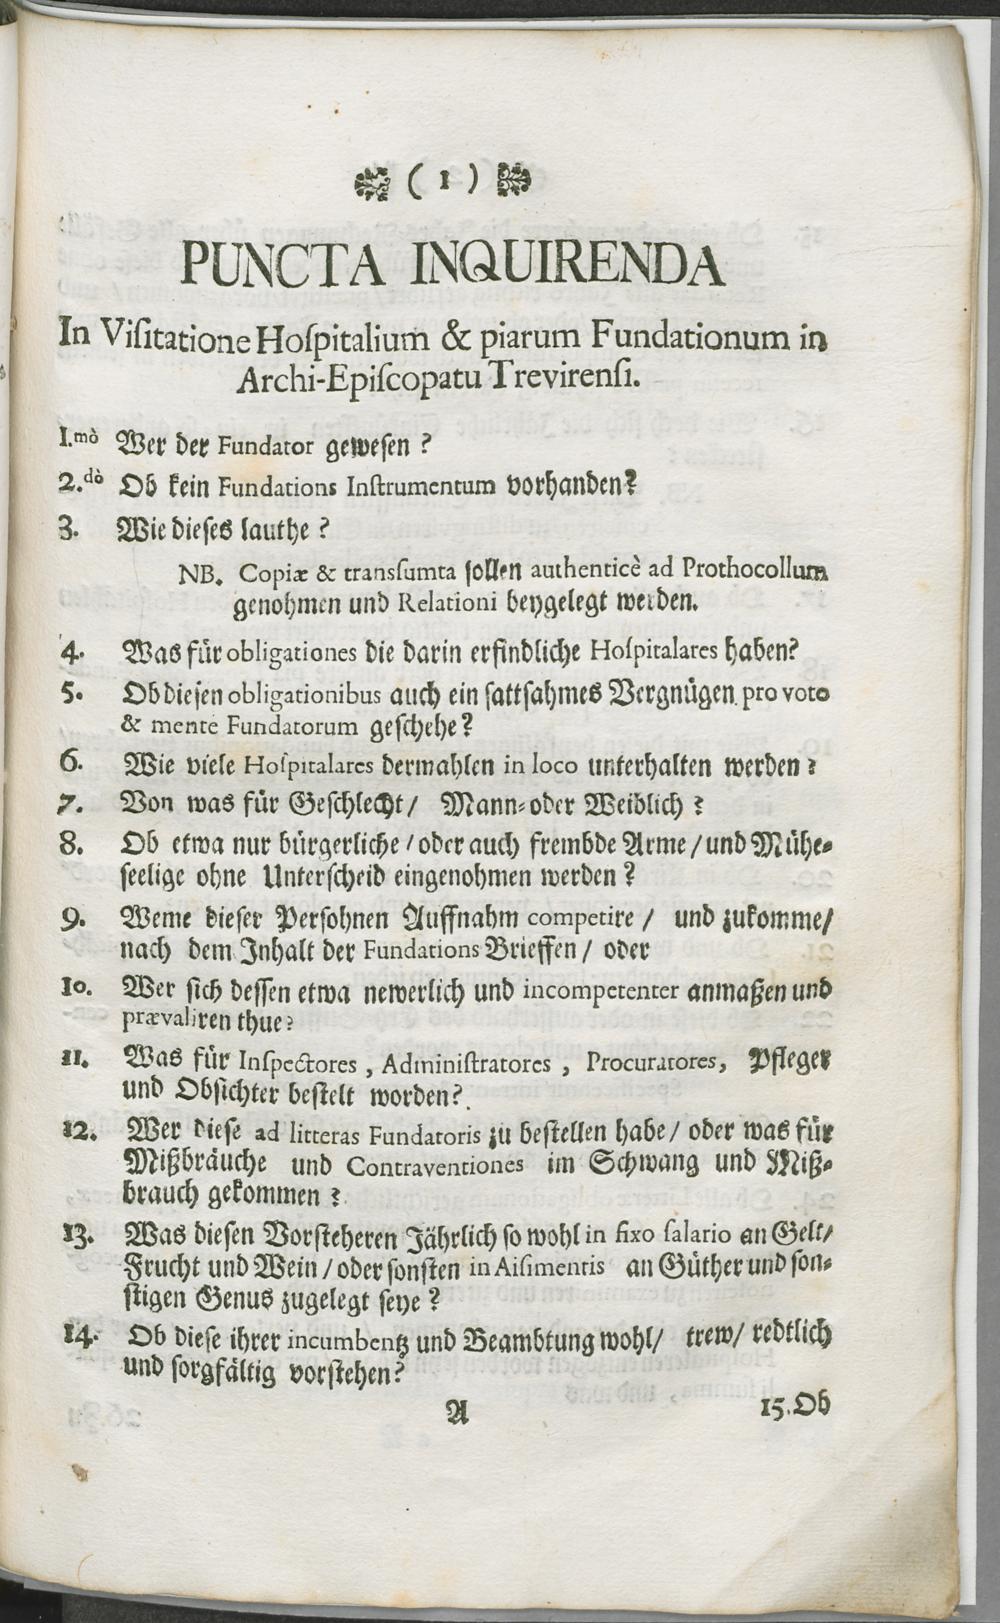 ( 1 )
PUNCTA INQUIRENDA
In Viſitatione Hoſpitalium & piarum Fundationum in
Archi-Epiſcopatu Trevirenſi.
1.mò Wer der Fundator geweſen ?
2.dò Ob kein Fundations Inſtrumentum vorhanden?
3. Wie dieſes lauthe ?
NB. Copiæ & transſumta ſollen authenticè ad Prothocollum
genohmen und Relationi beygelegt werden.
4. Was für obligationes die darin erfindliche Hoſpitalares haben?
5. Ob dieſen obligationibus auch ein ſattſahmes Vergnügen pro voto
& mente Fundatorum geſchehe?
6. Wie viele Hoſpitalares dermahlen in loco unterhalten werden ?
7. Von was für Geſchlecht/ Mann-oder Weiblich ?
8. Ob etwa nur bürgerliche / oder auch frembde Arme / und Mühe-
ſeelige ohne Unterſcheid eingenohmen werden ?
9. Weme dieſer Perſohnen Auffnahm competire / und zukomme/
nach dem Inhalt der Fundations Brieffen / oder
10. Wer ſich deſſen etwa newerlich und incompetenter anmaßen und
prævaliren thue?
11. Was für Inſpectores , Adminiſtratores , Procuratores, Pfleger
und Obſichter beſtelt worden?
12. Wer dieſe ad litteras Fundatoris zu beſtellen habe / oder was für
Mißbräuche und Contraventiones im Schwang und Miß-
brauch gekommen ?
13. Was dieſen Vorſteheren Jährlich ſo wohl in fixo ſalario an Gelt/
Frucht und Wein / oder ſonſten in Aiſimentis an Güther und ſon-
ſtigen Genus zugelegt ſeye ?
14. Ob dieſe ihrer incumbentz und Beambtung wohl/ trew/ redtlich
und ſorgfältig vorſtehen?
A 15. Ob